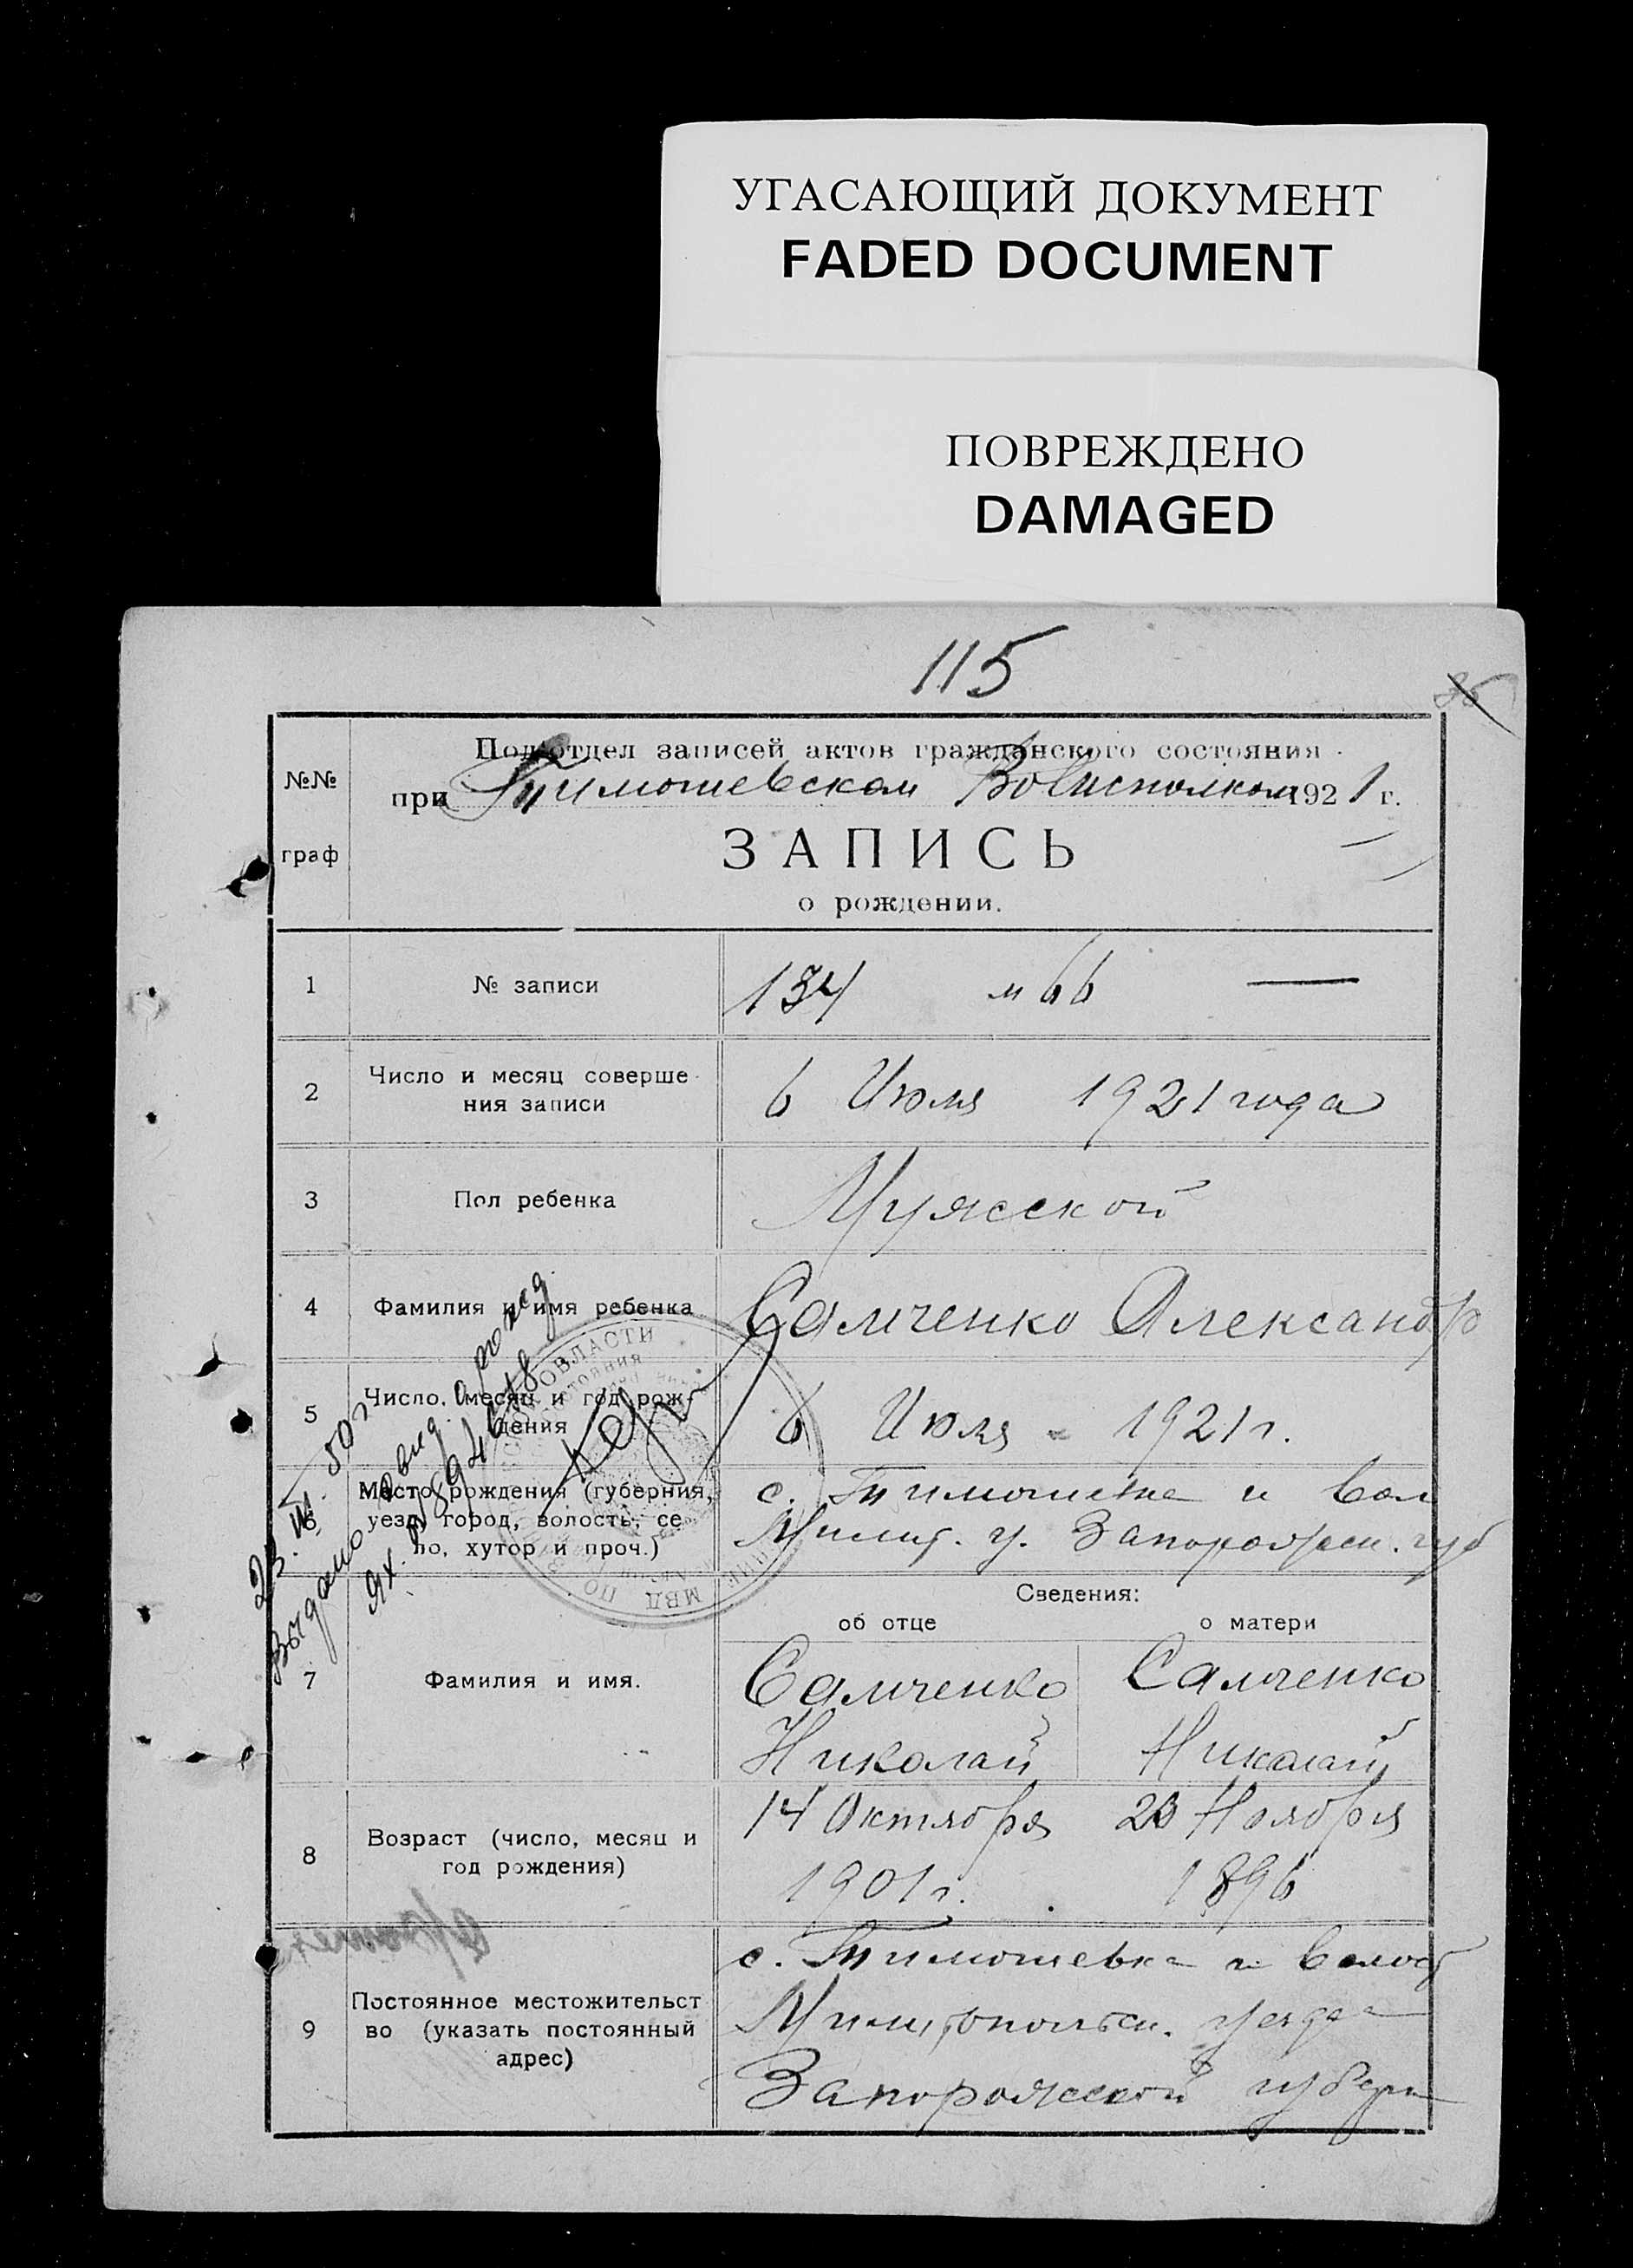 УГАСАЮЩИЙ ДОКУМЕНТ
FADED DOCUMENT
ПОВРЕЖДЕНО
DAMAGED
115
Подотдел записей актов гражданского состояния
при Тимошевском Волисполком 1921 г.
№№
граф
ЗАПИСЬ
о рождении.
1 № записи 134 м 66 —
2 Число и месяц соверше-
ния записи
6 Июля 1921 года
3 Пол ребенка Мужской
4 Фамилия и имя ребенка Самченко Александр
5 Число, месяц и год рож-
дения
6 Июля - 1921 г.
6 Место рождения (губерния,
уезд, город, волость, се
ло, хутор и проч.)
с. Тимошевка и вол
Мелит. у. Запорожск. губ
Сведения:
об отце о матери
7 Фамилия и имя.
Самченко Самченко
Николай Николай
8 Возраст (число, месяц и
год рождения)
14 Октября 23 Ноября
1901 г. 1896
9 Постоянное местожительст
во (указать постоянный
адрес)
с. Тимошевка и волост
Мелитопольск. уезда
Запорожской губерн
Выдано повид. о рожд
ОБЛАСТИ
МВД ПО